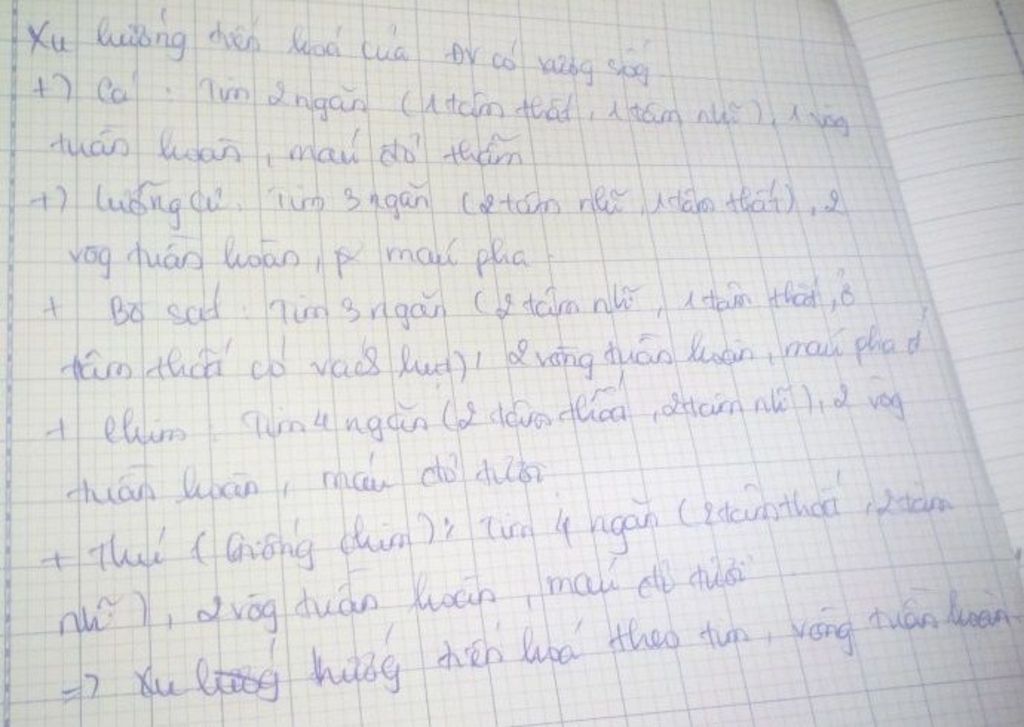 Xu hướng tiến hoá của ĐV có xương sống
+) Cá : Tim 2 ngăn (1 tâm thất, 1 tâm nhĩ), 1 vòng
tuần hoàn, máu đỏ thẫm
+) Lưỡng cư. Tim 3 ngăn (2 tâm nhĩ, 1 tâm thất), 2
vòg tuần hoàn, máu pha
+ Bò sát : Tim 3 ngăn (2 tâm nhĩ, 1 tâm thất, ở
tâm thất có vách hụt), 2 vòng tuần hoàn, máu pha
+ Chim : Tim 4 ngăn (2 tâm thất, 2 tâm nhĩ), 2 vòg
tuần hoàn, máu đỏ tươi
+ Thú (Giống chim): Tim 4 ngăn (2 tâm thất, 2 tâm
nhĩ), 2 vòg tuần hoàn, máu đỏ tươi
=> Xu hướng tiến hoá theo tim, vòng tuần hoàn